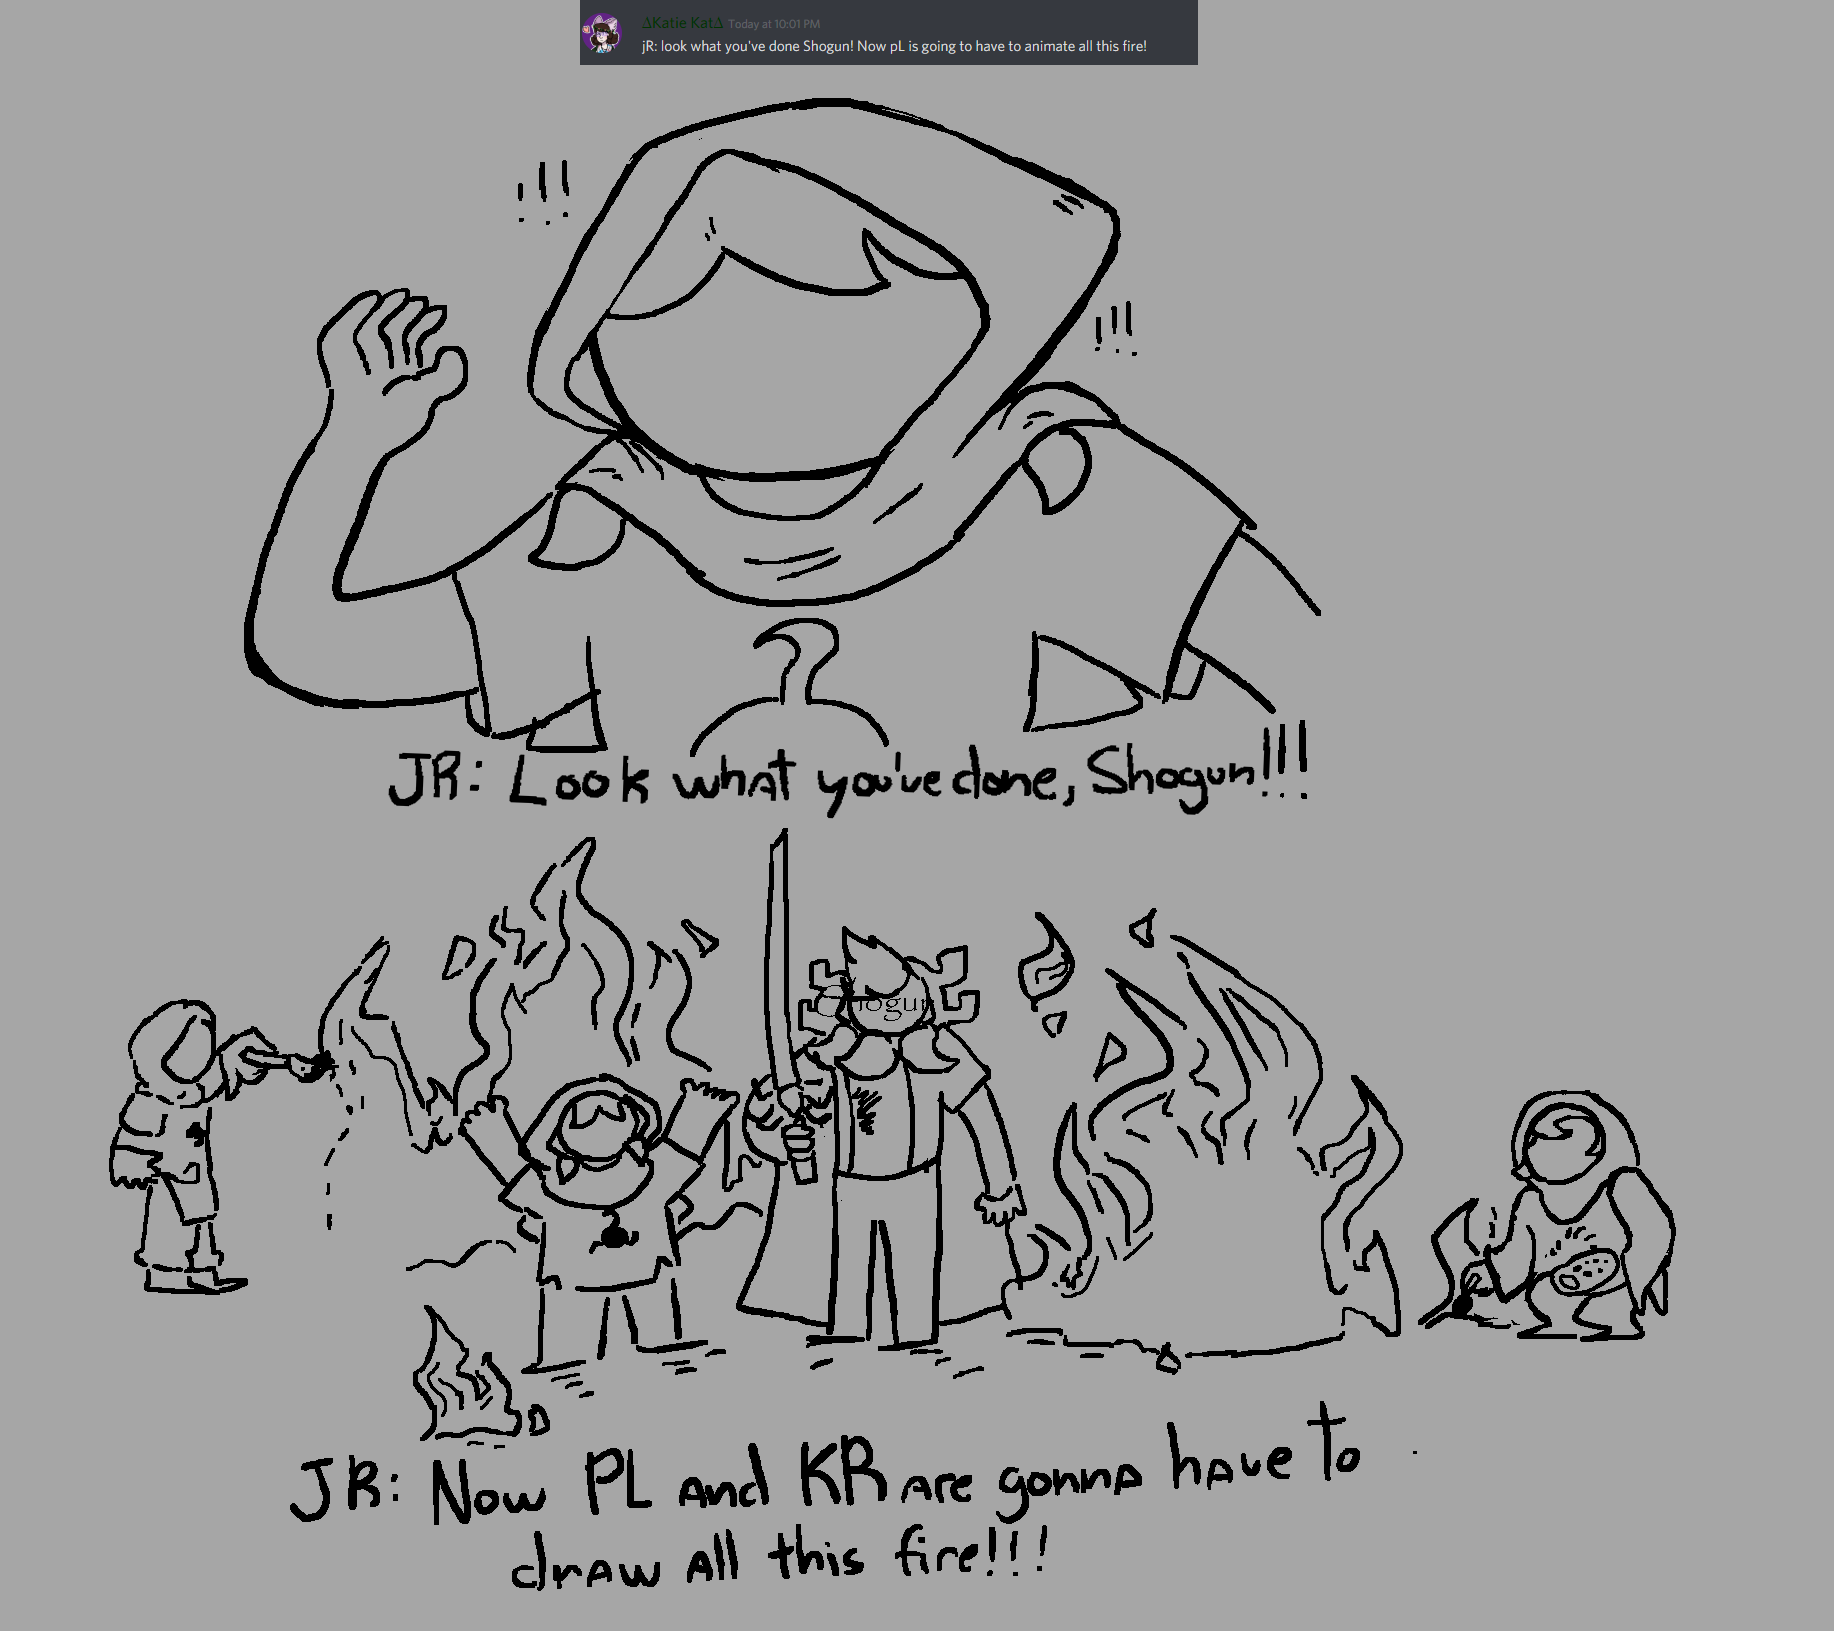 ∆Katie Kat∆ Today at 10:01 PM
jR: look what you've done Shogun! Now pL is going to have to animate all this fire!
JR: Look what you've done, Shogun!!!
Shogun
JR: Now PL and KR are gonna have to
draw all this fire!!!